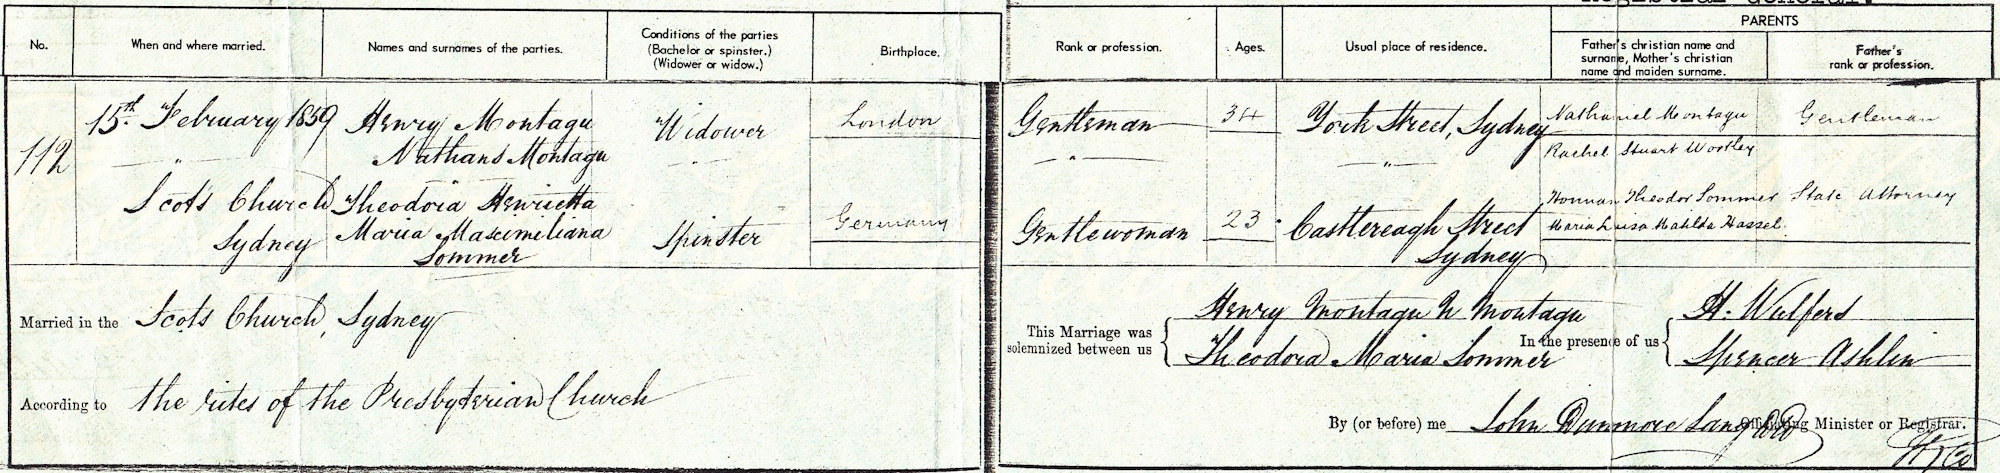 Registrar General.
PARENTS
No.
When and where married.
Names and surnames of the parties.
Conditions of the parties
(Bachelor or spinster.)
(Widower or widow.)
Birthplace.
Rank or profession.
Ages.
Usual place of residence.
Father's christian name and
surname, Mother's christian
name and maiden surname.
Father's
rank or profession.
112
15th February 1859
— " —
Scots Church
Sydney
Henry Montagu
Nathans Montagu
Theodora Henrietta
Maria Maximiliana
Sommer
Widower
— " —
Spinster
London
Germany
Gentleman
— " —
Gentlewoman
34
23
York Street, Sydney
— " —
Castlereagh Street
Sydney
Nathaniel Montagu
Rachel Stuart Wortley
Theodor Sommer
Maria Luisa Hassel
Gentleman
State Attorney
Married in the Scots Church, Sydney
According to the rites of the Presbyterian Church
This Marriage was
solemnized between us
Henry Montagu N Montagu
Theodora Maria Sommer
In the presence of us
H. Wulfers
Spencer Ashlin
By (or before) me John Dunmore Lang DD Officiating Minister or Registrar.